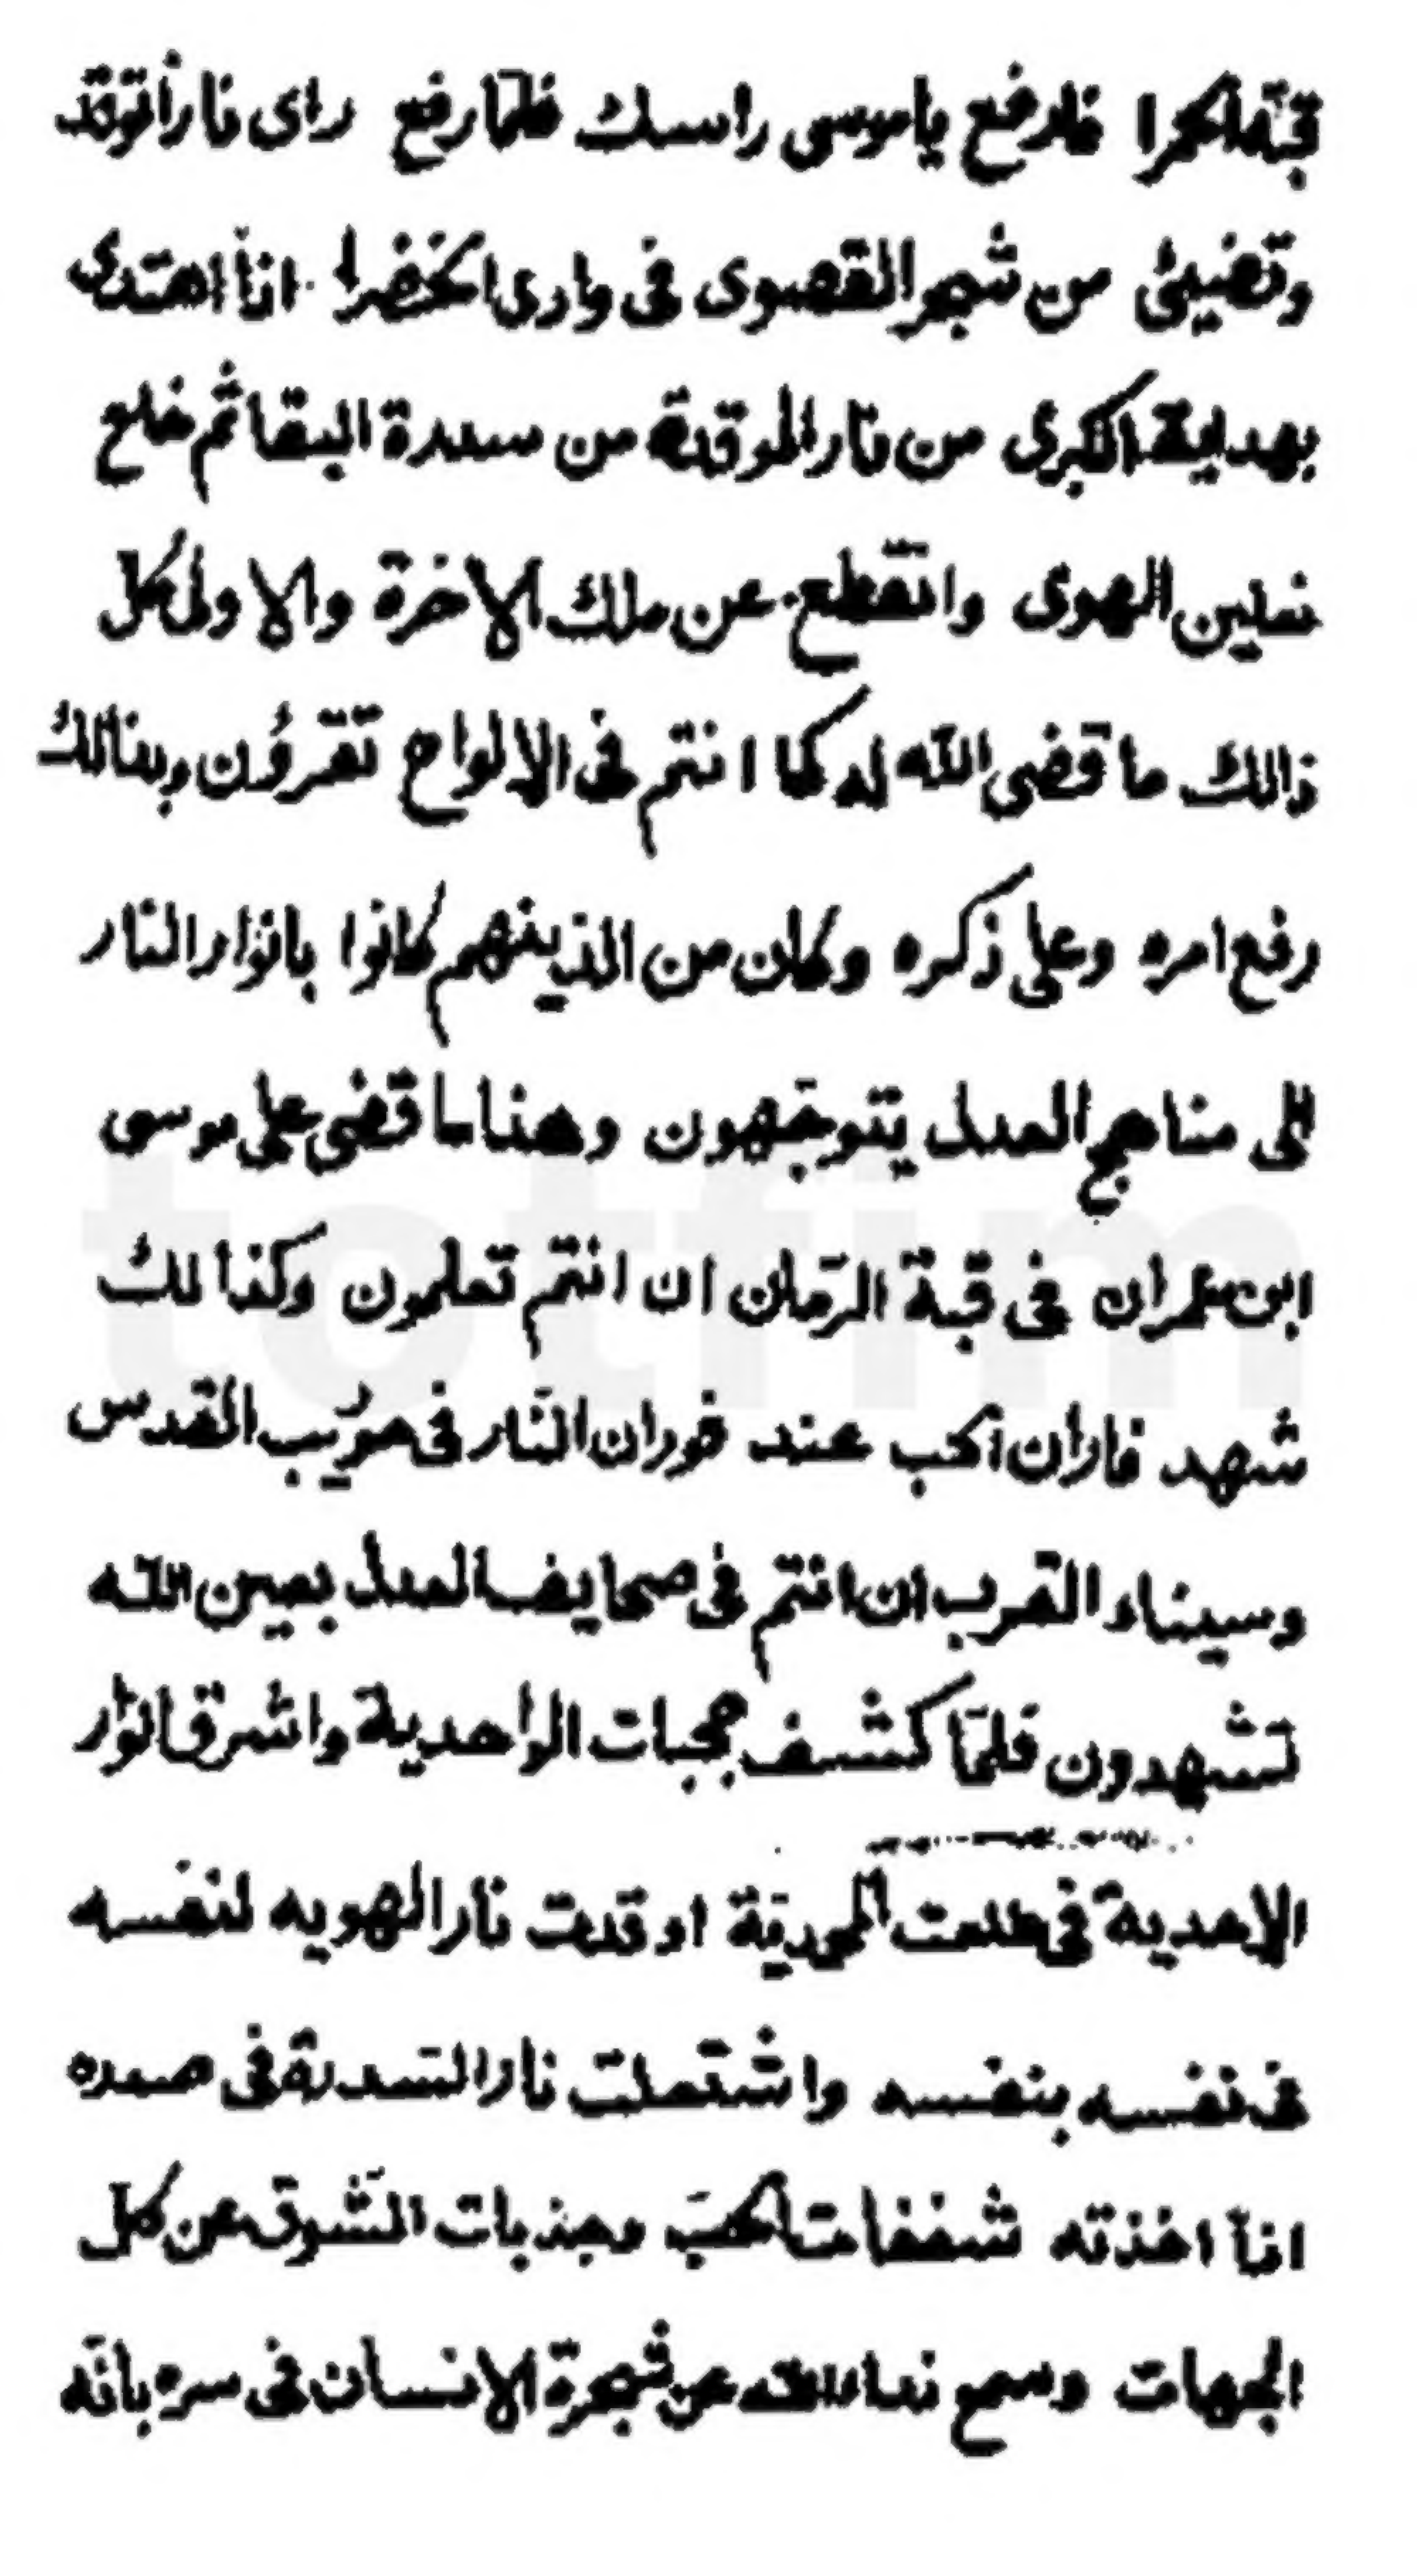 قبة الحمرا فارفع ياموسى راسك فلمّا رفع راى ناراً توقد
وتضيئ من شجر القصوى فى وادى الخضرا اذاً اهتدى
بهداية الكبرى من نار الموقدة من سدرة البقا ثم خلع
نعلين الهوى وانقطع عن ملك الاخرة والاولى كل
ذالك ما قضى الله له كما انتم فى الالواح تقرؤن وبذالك
رفع امره وعلى ذكره وكان من الذينهم كانوا بانوار النار
الى مناهج العدل يتوجّهون وهذا ما قضى على موسى
ابن عمران فى قبة الزّمان ان انتم تعلمون وكذالك
شهد فاران الحب عند فوران النّار فى حوريب القدس
وسيناء القرب ان انتم فى صحايف العدل بعين الله
تشهدون فلمّا كشف حجبات الواحدية واشرق انوار
الاحدية فى طلعت المحمديّة اوقدت نار الهويه لنفسه
فى نفسه بنفسه واشتعلت نار السّدرة فى صدره
اذاً اخذته شغفات الحبّ وجذبات الشّوق عن كل
الجهات وسمع نداء الله عن شجرة الانسان فى سره بانّه
totfim